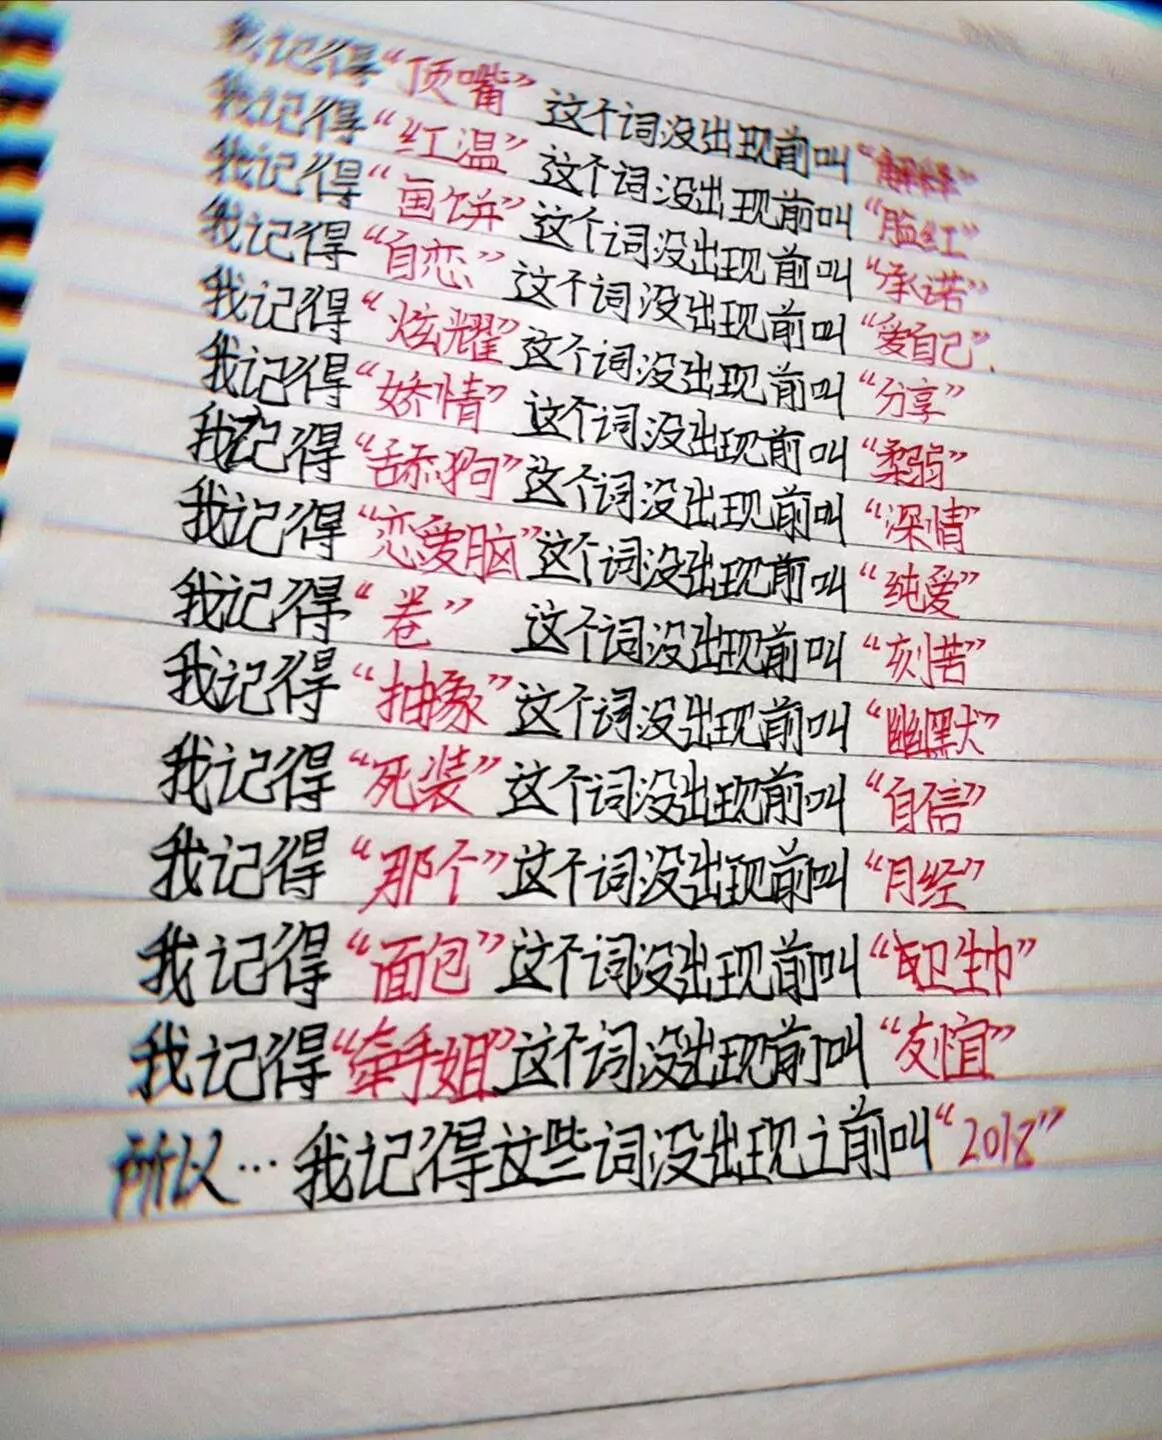 我记得“顶嘴”这个词没出现前叫“解释”
我记得“红温”这个词没出现前叫“脸红”
我记得“画饼”这个词没出现前叫“承诺”
我记得“自恋”这个词没出现前叫“爱自己”.
我记得“炫耀”这个词没出现前叫“分享”
我记得“娇情”这个词没出现前叫“柔弱”
我记得“舔狗”这个词没出现前叫“深情”
我记得“恋爱脑”这个词没出现前叫“纯爱”
我记得“卷”这个词没出现前叫“刻苦”
我记得“抽象”这个词没出现前叫“幽默”
我记得“死装”这个词没出现前叫“自信”
我记得“那个”这个词没出现前叫“月经”
我记得“面包”这个词没出现前叫“卫生巾”
我记得“牵手姐”这个词没出现前叫“友谊”
所以…我记得这些词没出现之前叫“2018”